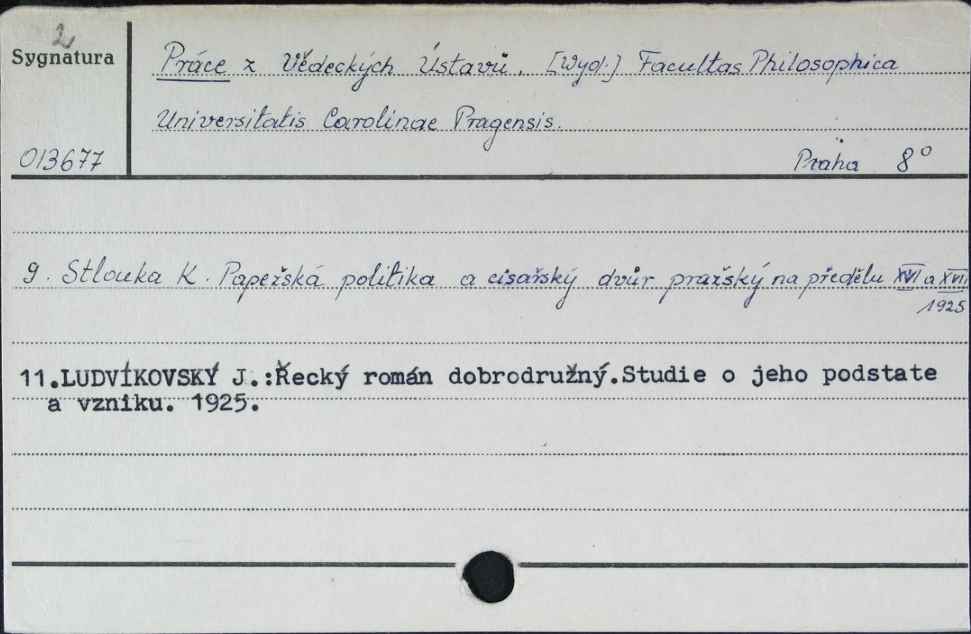 2
Sygnatura
Práce z Vědeckých Ústavů. [Wyd.] Facultas Philosophica
Universitatis Carolinae Pragensis.
013677
Praha 8°
9. Stlouka K. Papežská politika a cisařský dvůr pražský na předělu XVI a XVII
1925
11.LUDVÍKOVSKÝ J.:Řecký román dobrodružný.Studie o jeho podstate
a vzniku. 1925.